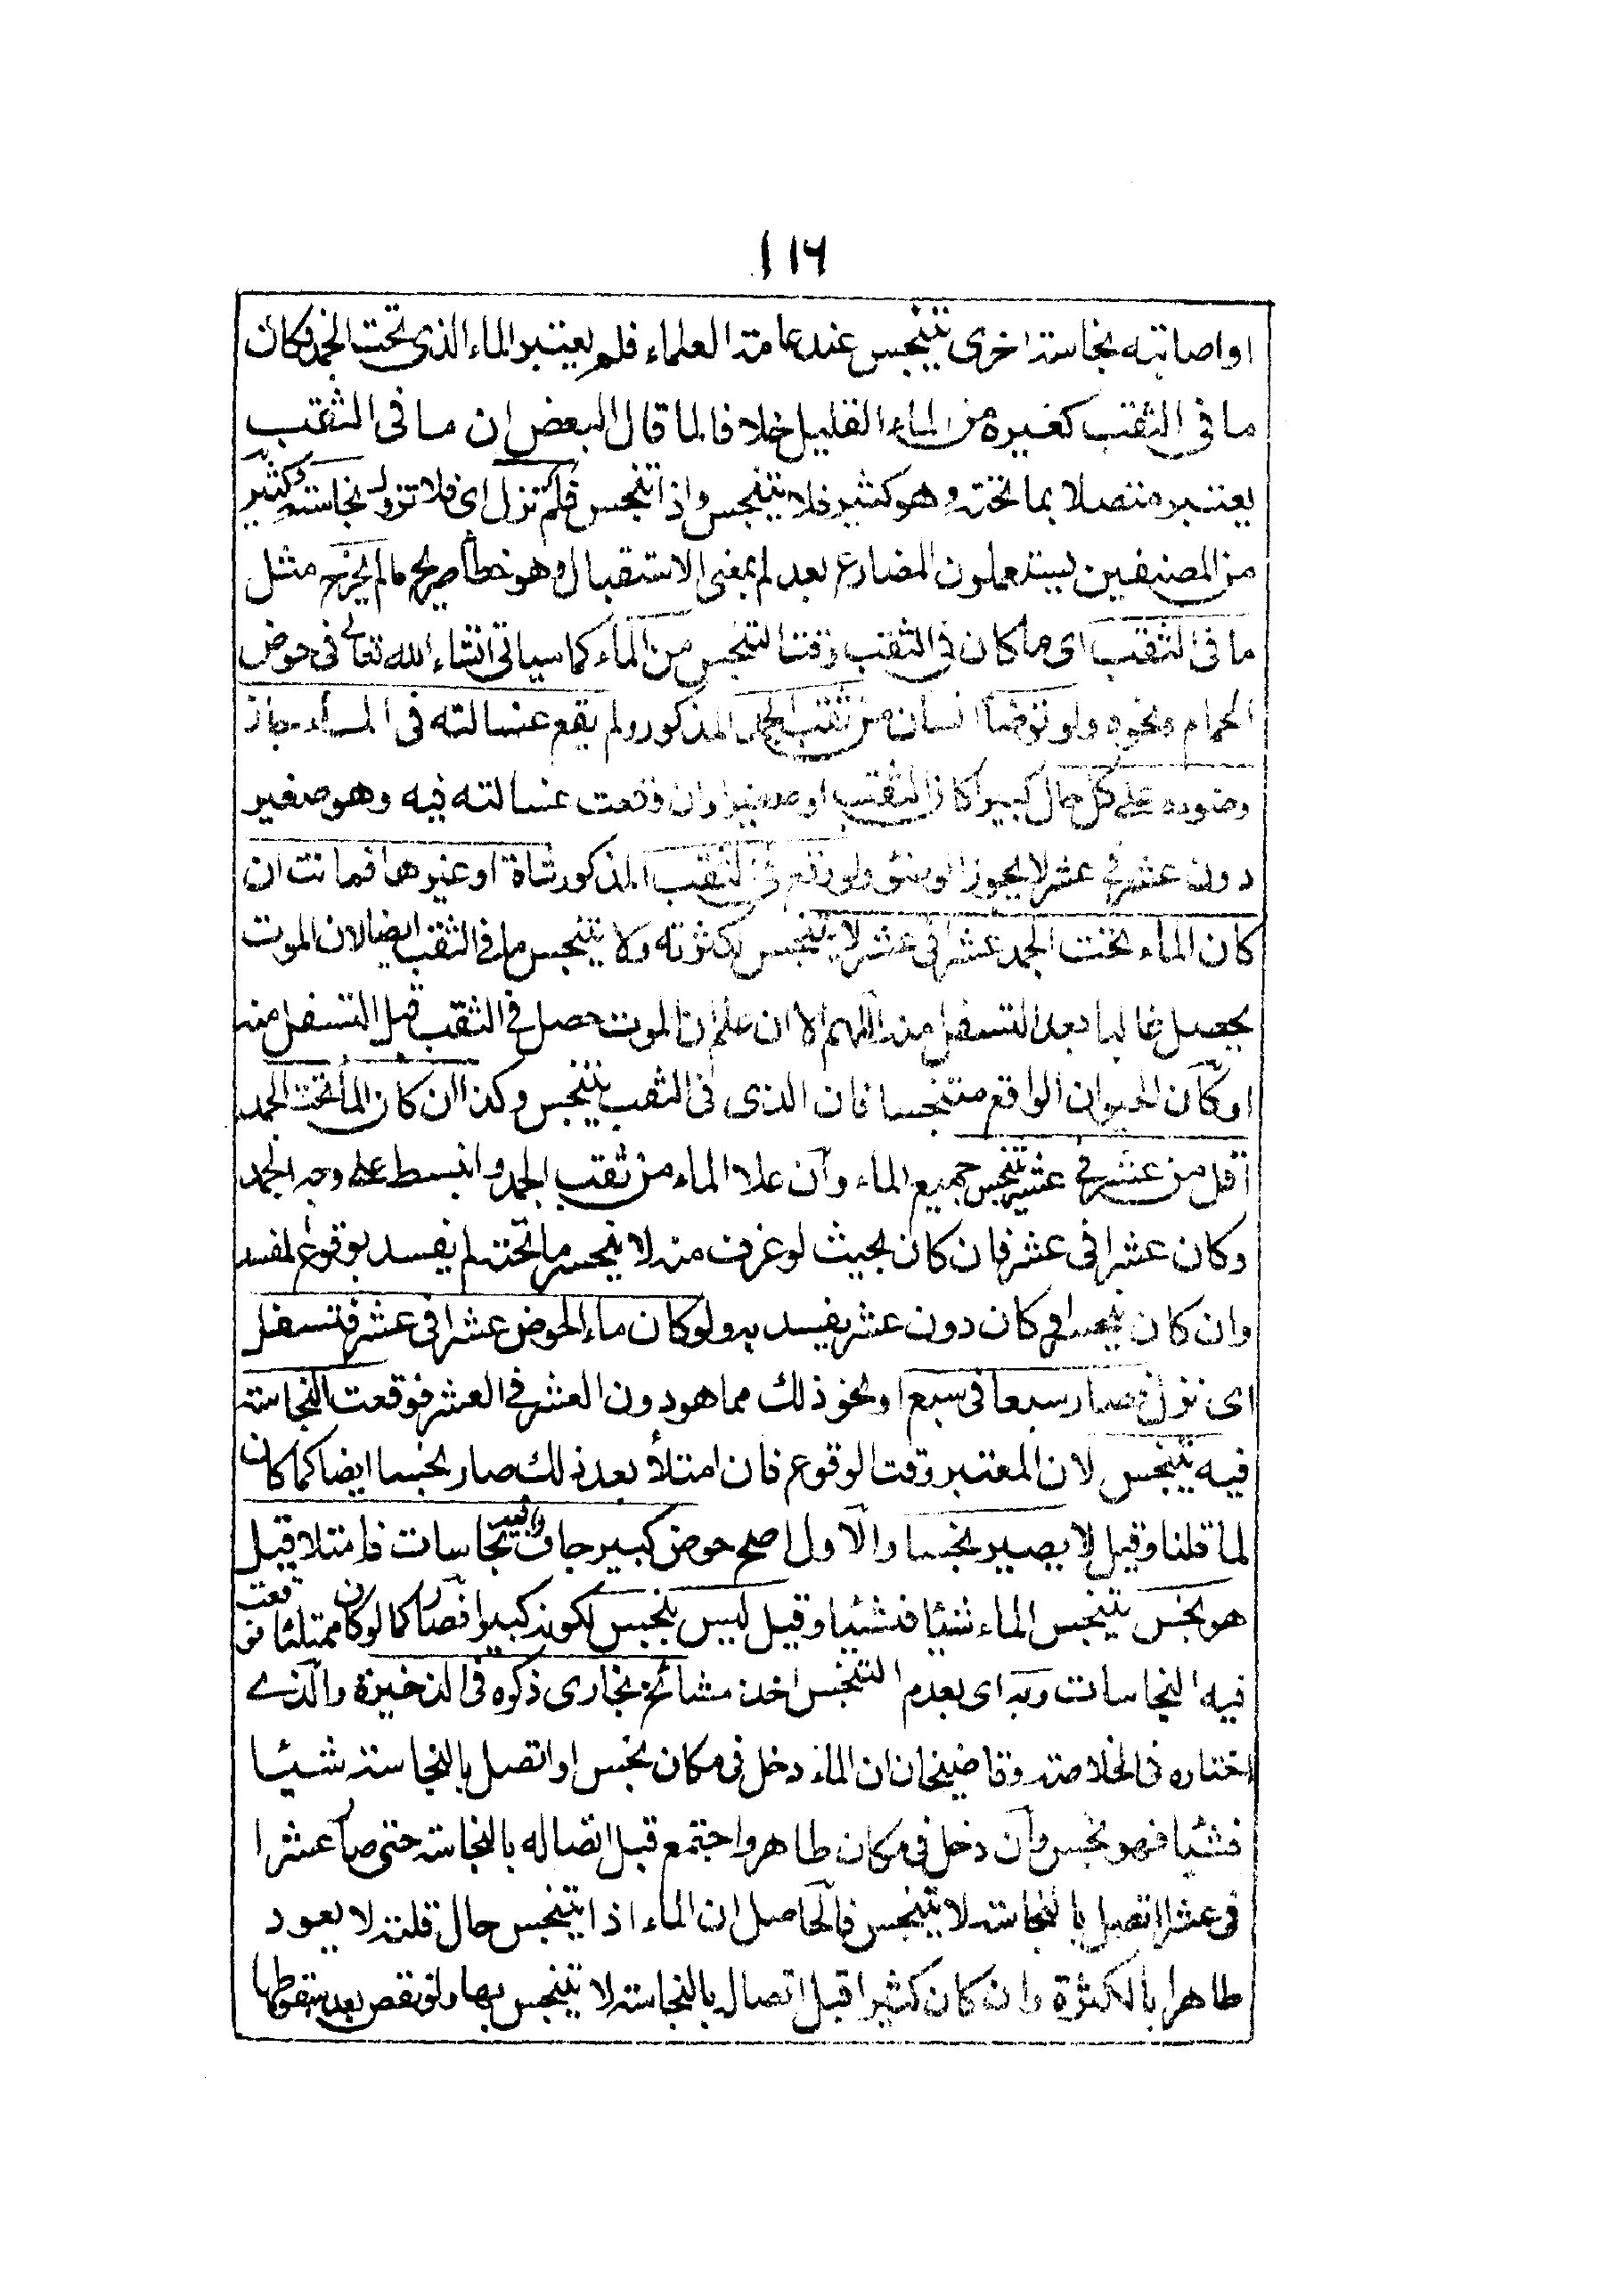 ١١٦
او اصابته نجاسة اخرى يتنجس عند عامة العلماء فلم يعتبر الماء الذى تحت الجمد فكان
ما فى الثقب كغيره من الماء القليل خلافا لما قال البعض ان ما فى الثقب
يعتبر متصلا بما تحته وهو كثير فلا يتنجس واذا تنجس فلم تزل اى فلا تزول نجاسته وكثير
من المصنفين يستعملون المضارع بعد لم بمعنى الاستقبال وهو خطأ صريح ما لم يخرج مثل
ما فى الثقب اى ما كان فى الثقب وقت التنجس من الماء كما سياتى انشاء الله تعالى فى حوض
الحمام ونحوه ولو توضأ انسان من ثقب الجمد المذكور ولم يقع غسالته فى الماء جاز
وضوءه على كل حال كبيرا كان الثقب او صغيرا وان وقعت غسالته فيه وهو صغير
دون عشر فى عشر لا يجوز الوضوء ولو وقع فى الثقب المذكور شاة او غيرها فماتت ان
كان الماء تحت الجمد عشرا فى عشر لا يتنجس لكثرته ولا يتنجس ما فى الثقب ايضا لان الموت
يحصل غالبا بعد التسفل منه اللهم الا ان علم ان الموت حصل فى الثقب قبل التسفل منه
او كان الحيوان الواقع متنجسا فان الذى فى الثقب يتنجس وكذا ان كان الماء تحت الجمد
اقل من عشر فى عشر يتنجس جميع الماء وان علا الماء من ثقب الجمد وانبسط على وجه الجمد
وكان عشرا فى عشر فان كان بحيث لو غرف منه لا ينحسر ما تحته لم يفسد بوقوع المفسد
وان كان ينحسر او كان دون عشر يفسد به ولو كان ماء الحوض عشرا فى عشر فتسفل
اى نزل فصار سبعا فى سبع او نحو ذلك مما هو دون العشر فى العشر فوقعت النجاسة
فيه يتنجس لان المعتبر وقت الوقوع فان امتلأ بعد ذلك صار نجسا ايضا كما كان
لما قلنا وقيل لا يصير نجسا والاول اصح حوض كبير جاف وفيه نجاسات فامتلا قيل
هو نجس يتنجس الماء شيئا فشيئا وقيل ليس بنجس لكونه كبيرا فصار كما لو كان ممتلئا فوقعت
فيه النجاسات وبه اى بعدم التنجس اخذ مشائخ بخارى ذكره فى الذخيرة والذى
اختاره فى الخلاصة وقاضيخان ان الماء دخل فى مكان نجس او اتصل بالنجاسة شيئا
فشيئا فهو نجس وان دخل فى مكان طاهر واجتمع قبل اتصاله بالنجاسة حتى صار عشرا
فى عشر اتصل بالنجاسة لا يتنجس فالحاصل ان الماء اذا تنجس حال قلته لا يعود
طاهرا بالكثرة وان كان كثيرا قبل اتصاله بالنجاسة لا يتنجس بها ولو نقص بعد سقوطها